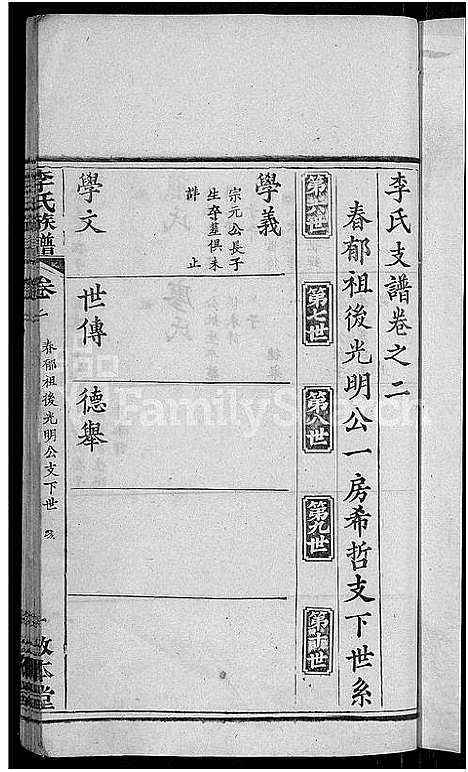 李氏支譜卷之二
春郁祖後光明公一房希哲支下世系
第六世
第七世
第八世
第九世
第十世
學義
宗元公長子
生卒塟俱未
詳止
學文
世傳
德舉
李氏族譜
卷二
春郁祖後光明公支下世
敦本堂
FamilySearch